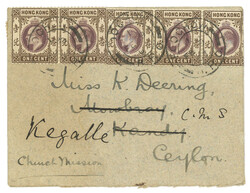 HONG KONG HONG KONG HONG KONG HONG KONG HONG KONG
ONE CENT ONE CENT ONE CENT ONE CENT ONE CENT
Miss K. Deering,
Mowbray, C.M.S
Kegalle Kandy
Church Mission Ceylon.